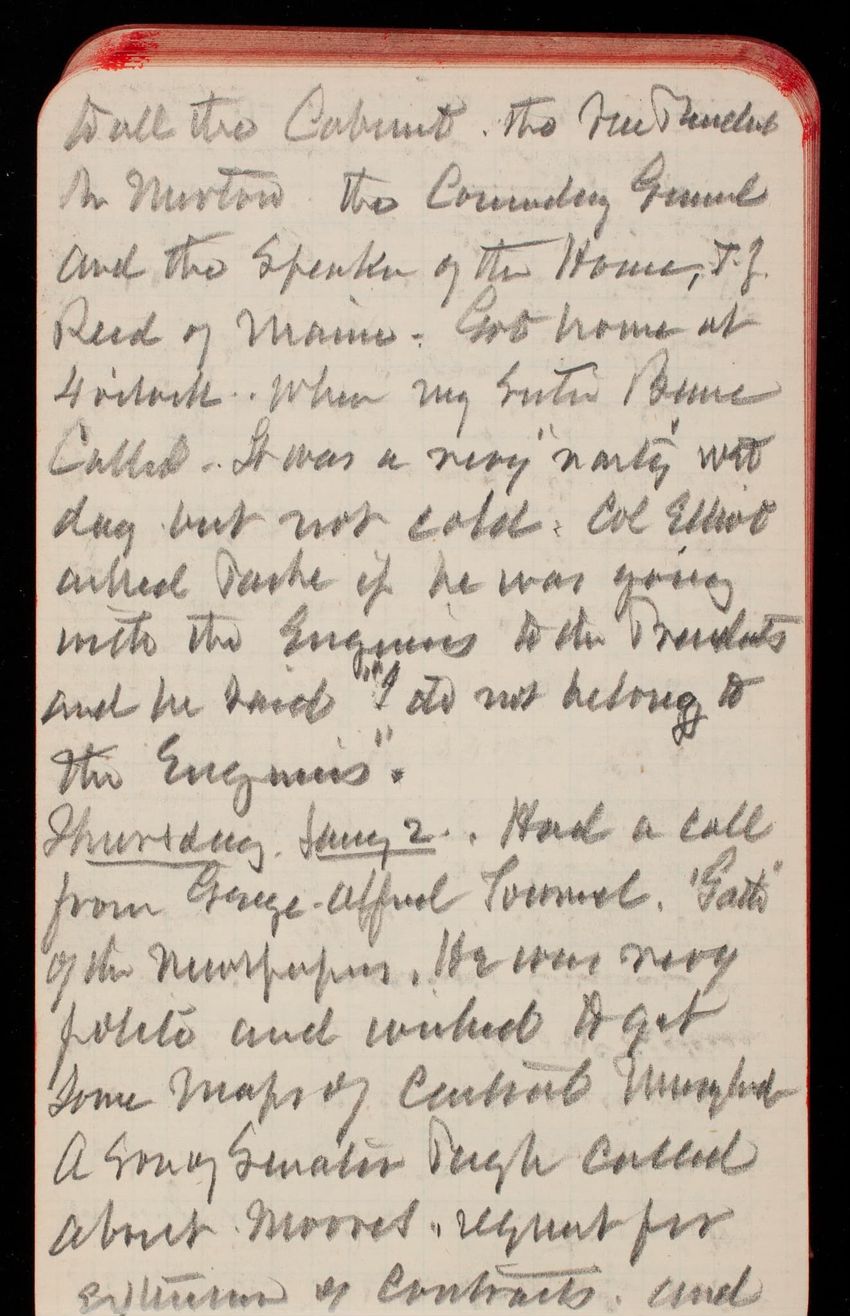 to all the Cabinet. the Vice President
Mr Morton the Comndng General
and the Speaker of the House, T.J.
Reed of Maine. Got home at
4 o'clock.. When my Sister
Called.. It was a very "nasty" wet
day but not cold. Col Elliot
asked if he was going
with the Engineers to the Presidents
and he said "I do not belong to
the Engineers".
Thursday. Jany 2.. Had a call
from George Alfred Townsend. "Gath"
of the Newspapers. He was very
polite and wished to get
some Maps of Central Maryland
A Son of Senator Pugh called
about Moores. request for
extension of Contracts. and